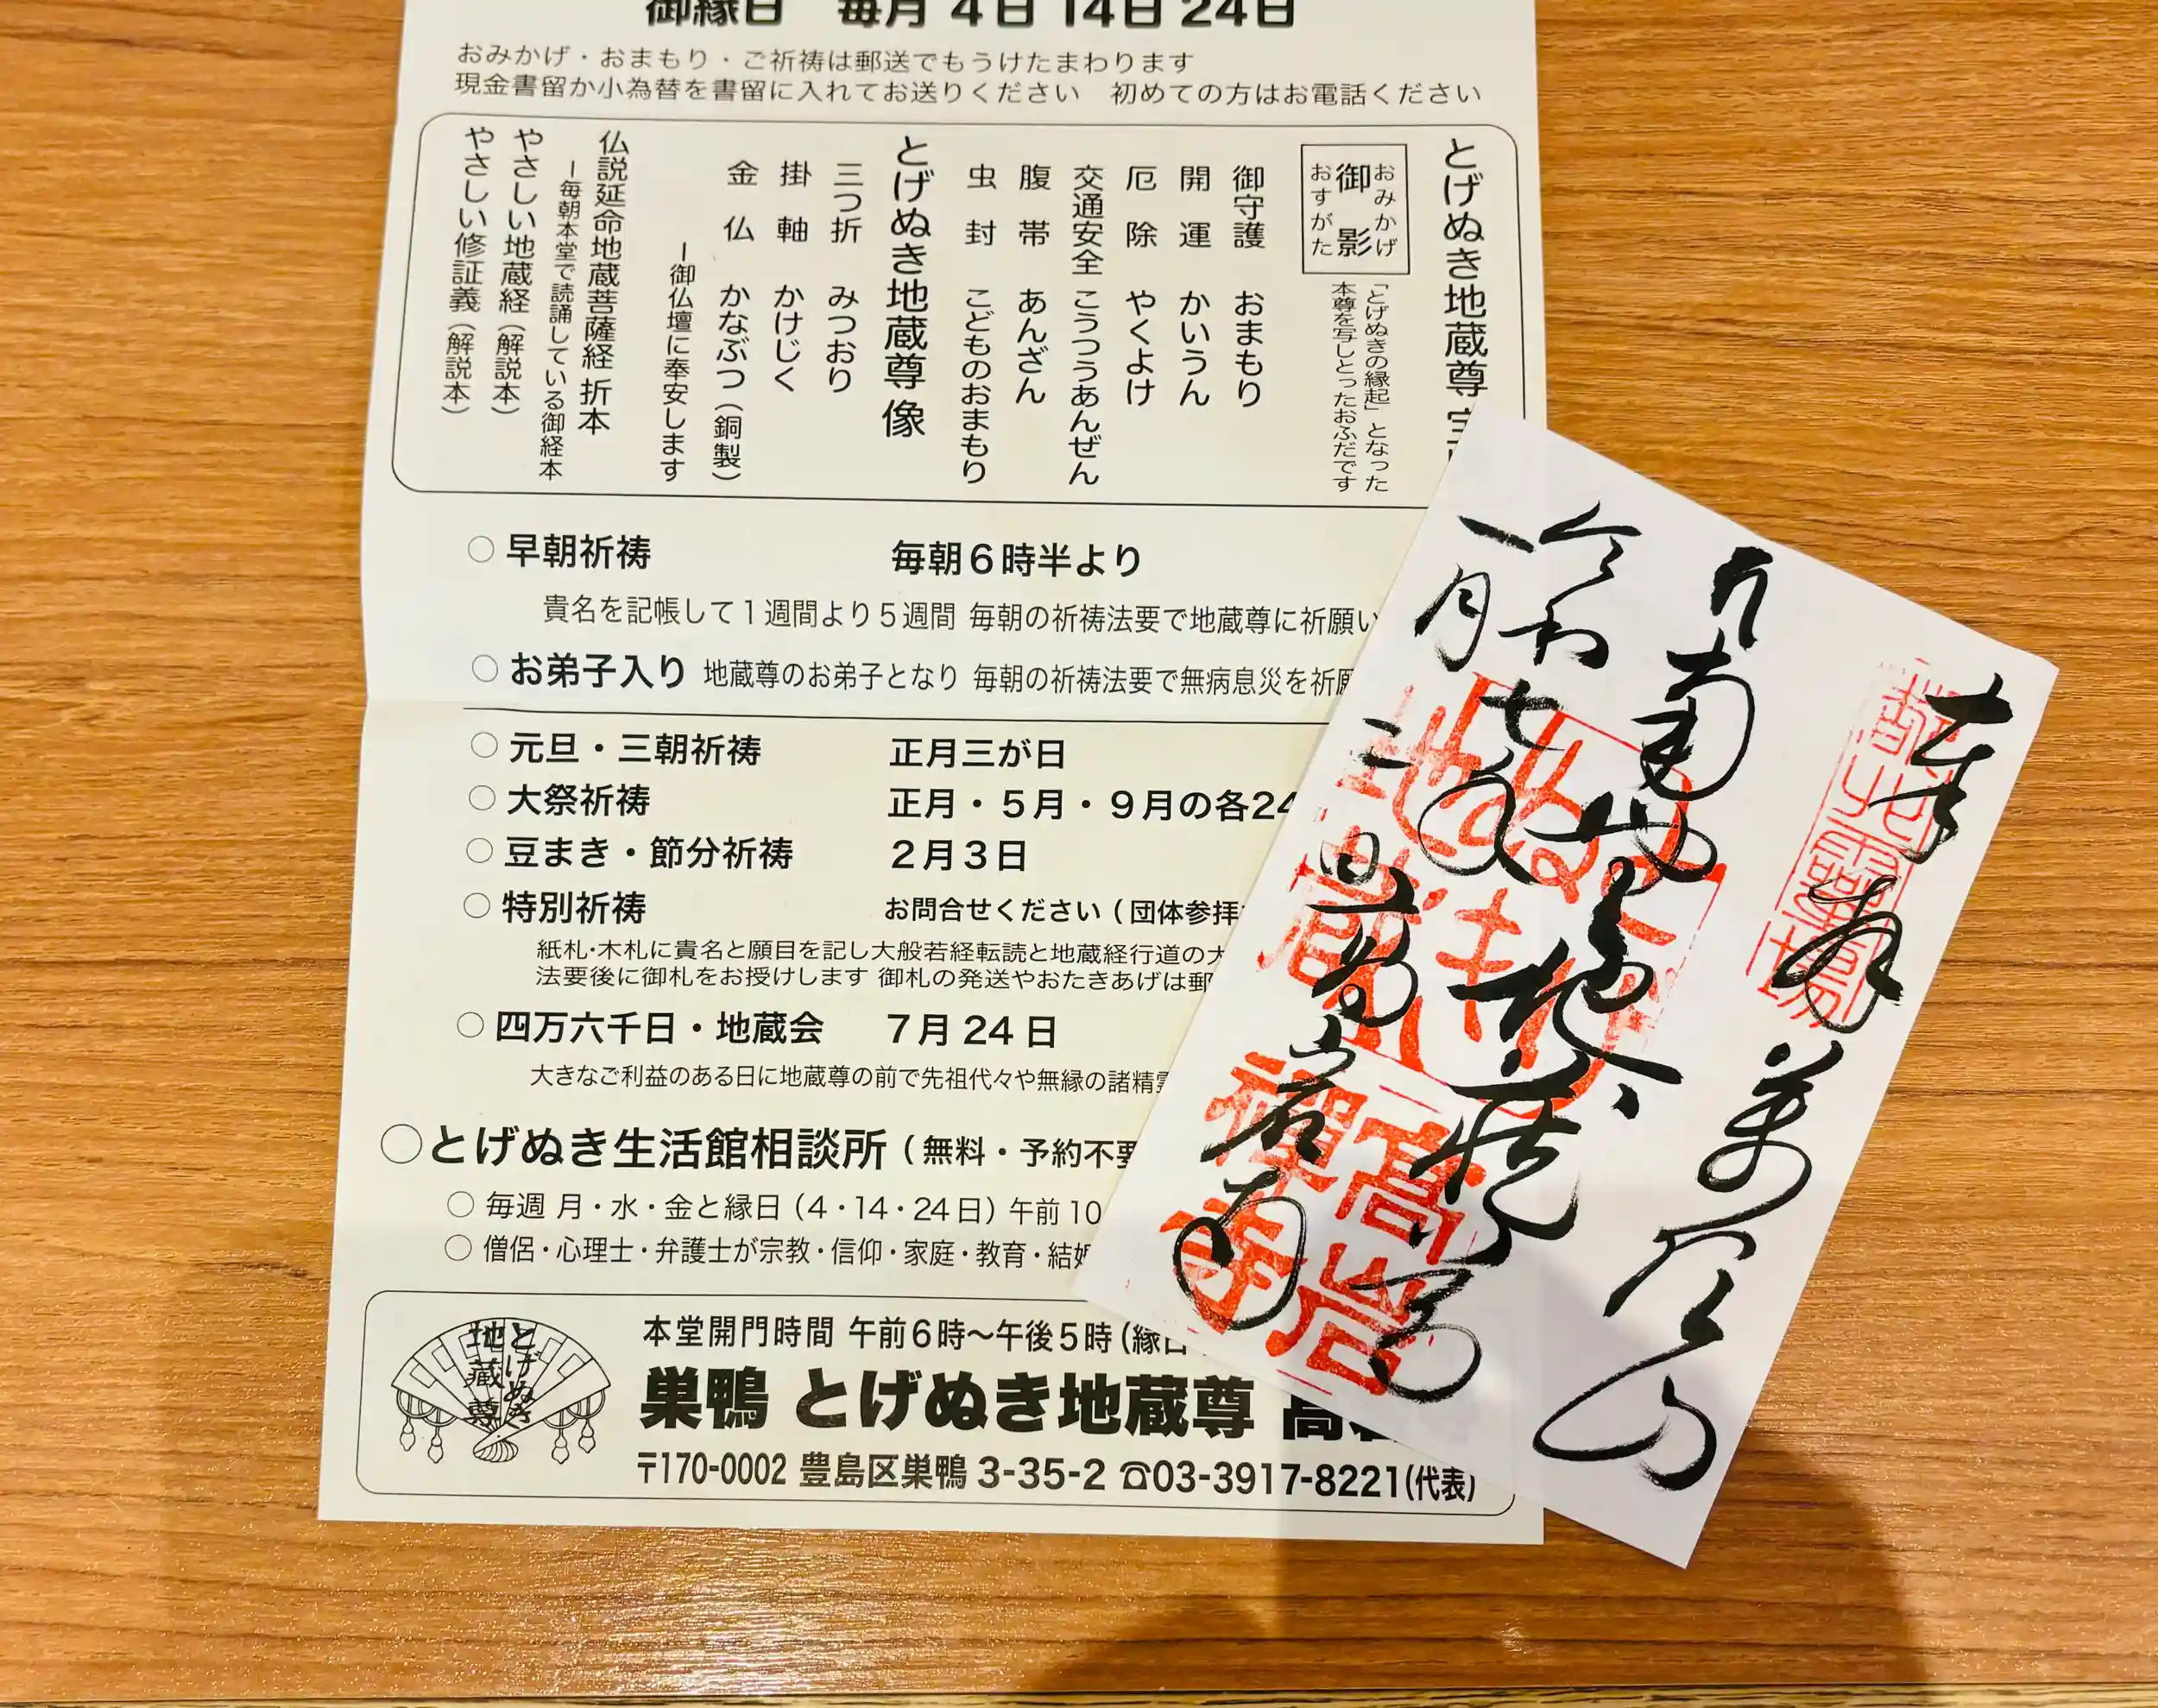 御縁日 毎月 4日 14日 24日
おみかげ・おまもり・ご祈祷は郵送でもうけたまわります
現金書留か小為替を書留に入れてお送りください 初めての方はお電話ください
とげぬき地蔵尊
おみかげ
御影
おすがた
「とげぬきの縁起」となった
本尊を写しとったおふだです
御守護 おまもり
開運 かいうん
厄除 やくよけ
交通安全 こうつうあんぜん
腹帯 あんざん
虫封 こどものおまもり
とげぬき地蔵尊 像
三つ折 みつおり
掛軸 かけじく
金仏 かなぶつ(銅製)
ー御仏壇に奉安します
仏説延命地蔵菩薩経 折本
ー毎朝本堂で読誦している御経本
やさしい地蔵経(解説本)
やさしい修証義(解説本)
○ 早朝祈祷 毎朝6時半より
貴名を記帳して1週間より5週間 毎朝の祈祷法要で地蔵尊に祈願い
○ お弟子入り 地蔵尊のお弟子となり 毎朝の祈祷法要で無病息災を祈願
○ 元旦・三朝祈祷 正月三が日
○ 大祭祈祷 正月・5月・9月の各24
○ 豆まき・節分祈祷 2月3日
○ 特別祈祷 お問合せください(団体参拝
紙札・木札に貴名と願目を記し大般若経転読と地蔵経行道の大
法要後に御札をお授けします 御札の発送やおたきあげは郵
○ 四万六千日・地蔵会 7月24日
大きなご利益のある日に地蔵尊の前で先祖代々や無縁の諸精霊
○とげぬき生活館相談所(無料・予約不要
○ 毎週 月・水・金と縁日(4・14・24日)午前10
○ 僧侶・心理士・弁護士が宗教・信仰・家庭・教育・結婚
とげぬき
地蔵尊
本堂開門時間 午前6時〜午後5時(縁日
巣鴨 とげぬき地蔵尊 高岩
〒170-0002 豊島区巣鴨3-35-2 ☎03-3917-8221(代表)
高岩
禅寺
令和七
一月二